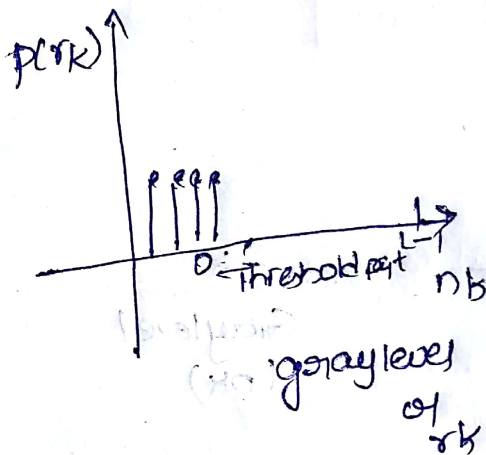 p(rk)
L-1
0 Threshold pt
nk
gray level
of
rk